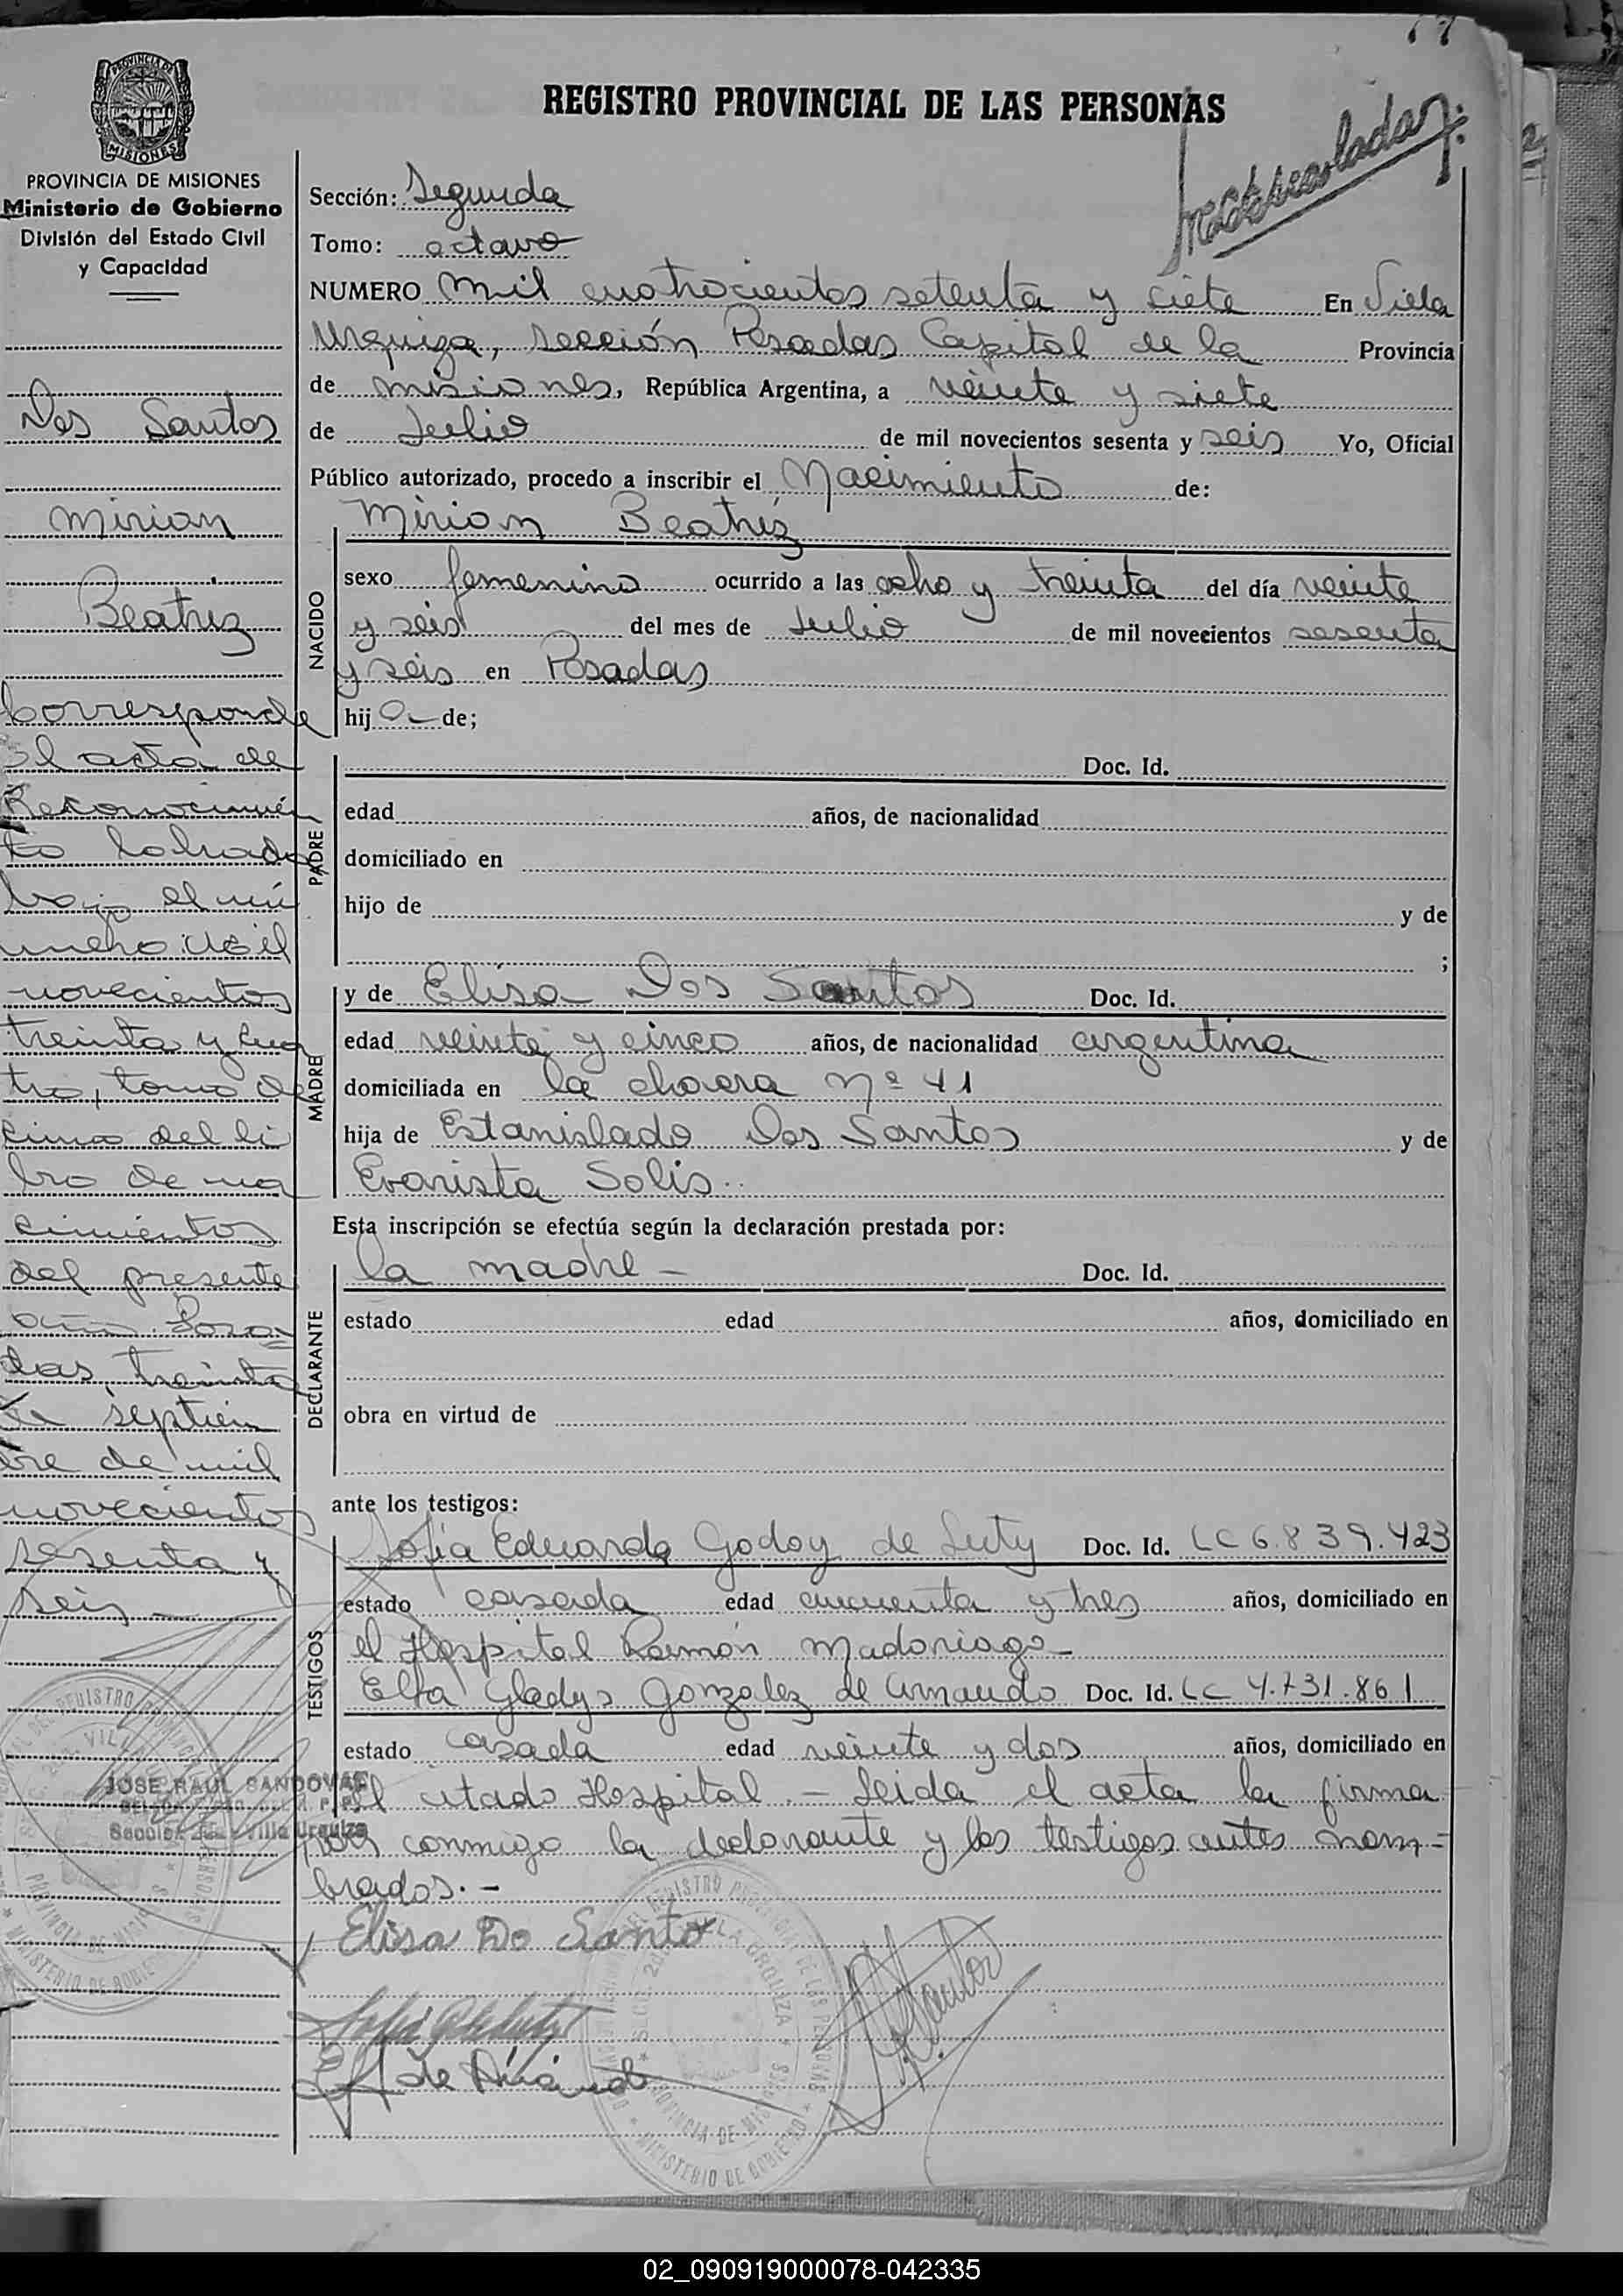 77
PROVINCIA DE
MISIONES
REGISTRO PROVINCIAL DE LAS PERSONAS
Matriculada
PROVINCIA DE MISIONES
Ministerio de Gobierno
División del Estado Civil
y Capacidad
Dos Santos
Mirian
Beatriz
Corresponde
al acta de
Reconocimien
to labrada
bajo el nú
mero Mil
novecientos
treinta y cua
tro, tomo dé
cimo del li
bro de na
cimientos
del presente
año. Posa
das, treinta
de septiem
bre de mil
novecientos
sesenta y
seis -
JOSE RAUL SANDOVAL
Sección 2da. Villa Urquiza
Sección: Segunda
Tomo: octavo
NUMERO mil cuatrocientos setenta y siete En Villa
Urquiza, sección Posadas Capital de la Provincia
de misiones, República Argentina, a veinte y siete
de Julio de mil novecientos sesenta y seis Yo, Oficial
Público autorizado, procedo a inscribir el Nacimiento de:
NACIDO
Mirian Beatriz
sexo femenino ocurrido a las ocho y treinta del día veinte
y seis del mes de Julio de mil novecientos sesenta
y seis en Posadas
hija de;
PADRE
Doc. Id.
edad años, de nacionalidad
domiciliado en
hijo de y de
;
MADRE
y de Elisa Dos Santos Doc. Id.
edad veinte y cinco años, de nacionalidad argentina
domiciliada en la chacra Nº 41
hija de Estanislado Dos Santos y de
Evarista Solis.
Esta inscripción se efectúa según la declaración prestada por:
DECLARANTE
la madre - Doc. Id.
estado edad años, domiciliado en
obra en virtud de
ante los testigos:
TESTIGOS
Sofia Eduarda Godoy de Luty Doc. Id. LC 6.839.423
estado casada edad cincuenta y tres años, domiciliado en
el Hospital Ramón Madariaga
Elfa Gladys Gonzalez de Armando Doc. Id. LC 4.731.861
estado casada edad veinte y dos años, domiciliado en
el citado Hospital. - Leida el acta la firma
por conmigo la declarante y los testigos antes nom-
brados. -
Elisa Do Santo
REGISTRO PROVINCIAL DE LAS PERSONAS
VILLA URQUIZA
PROVINCIA DE MISIONES
MINISTERIO DE GOBIERNO
02_090919000078-042335